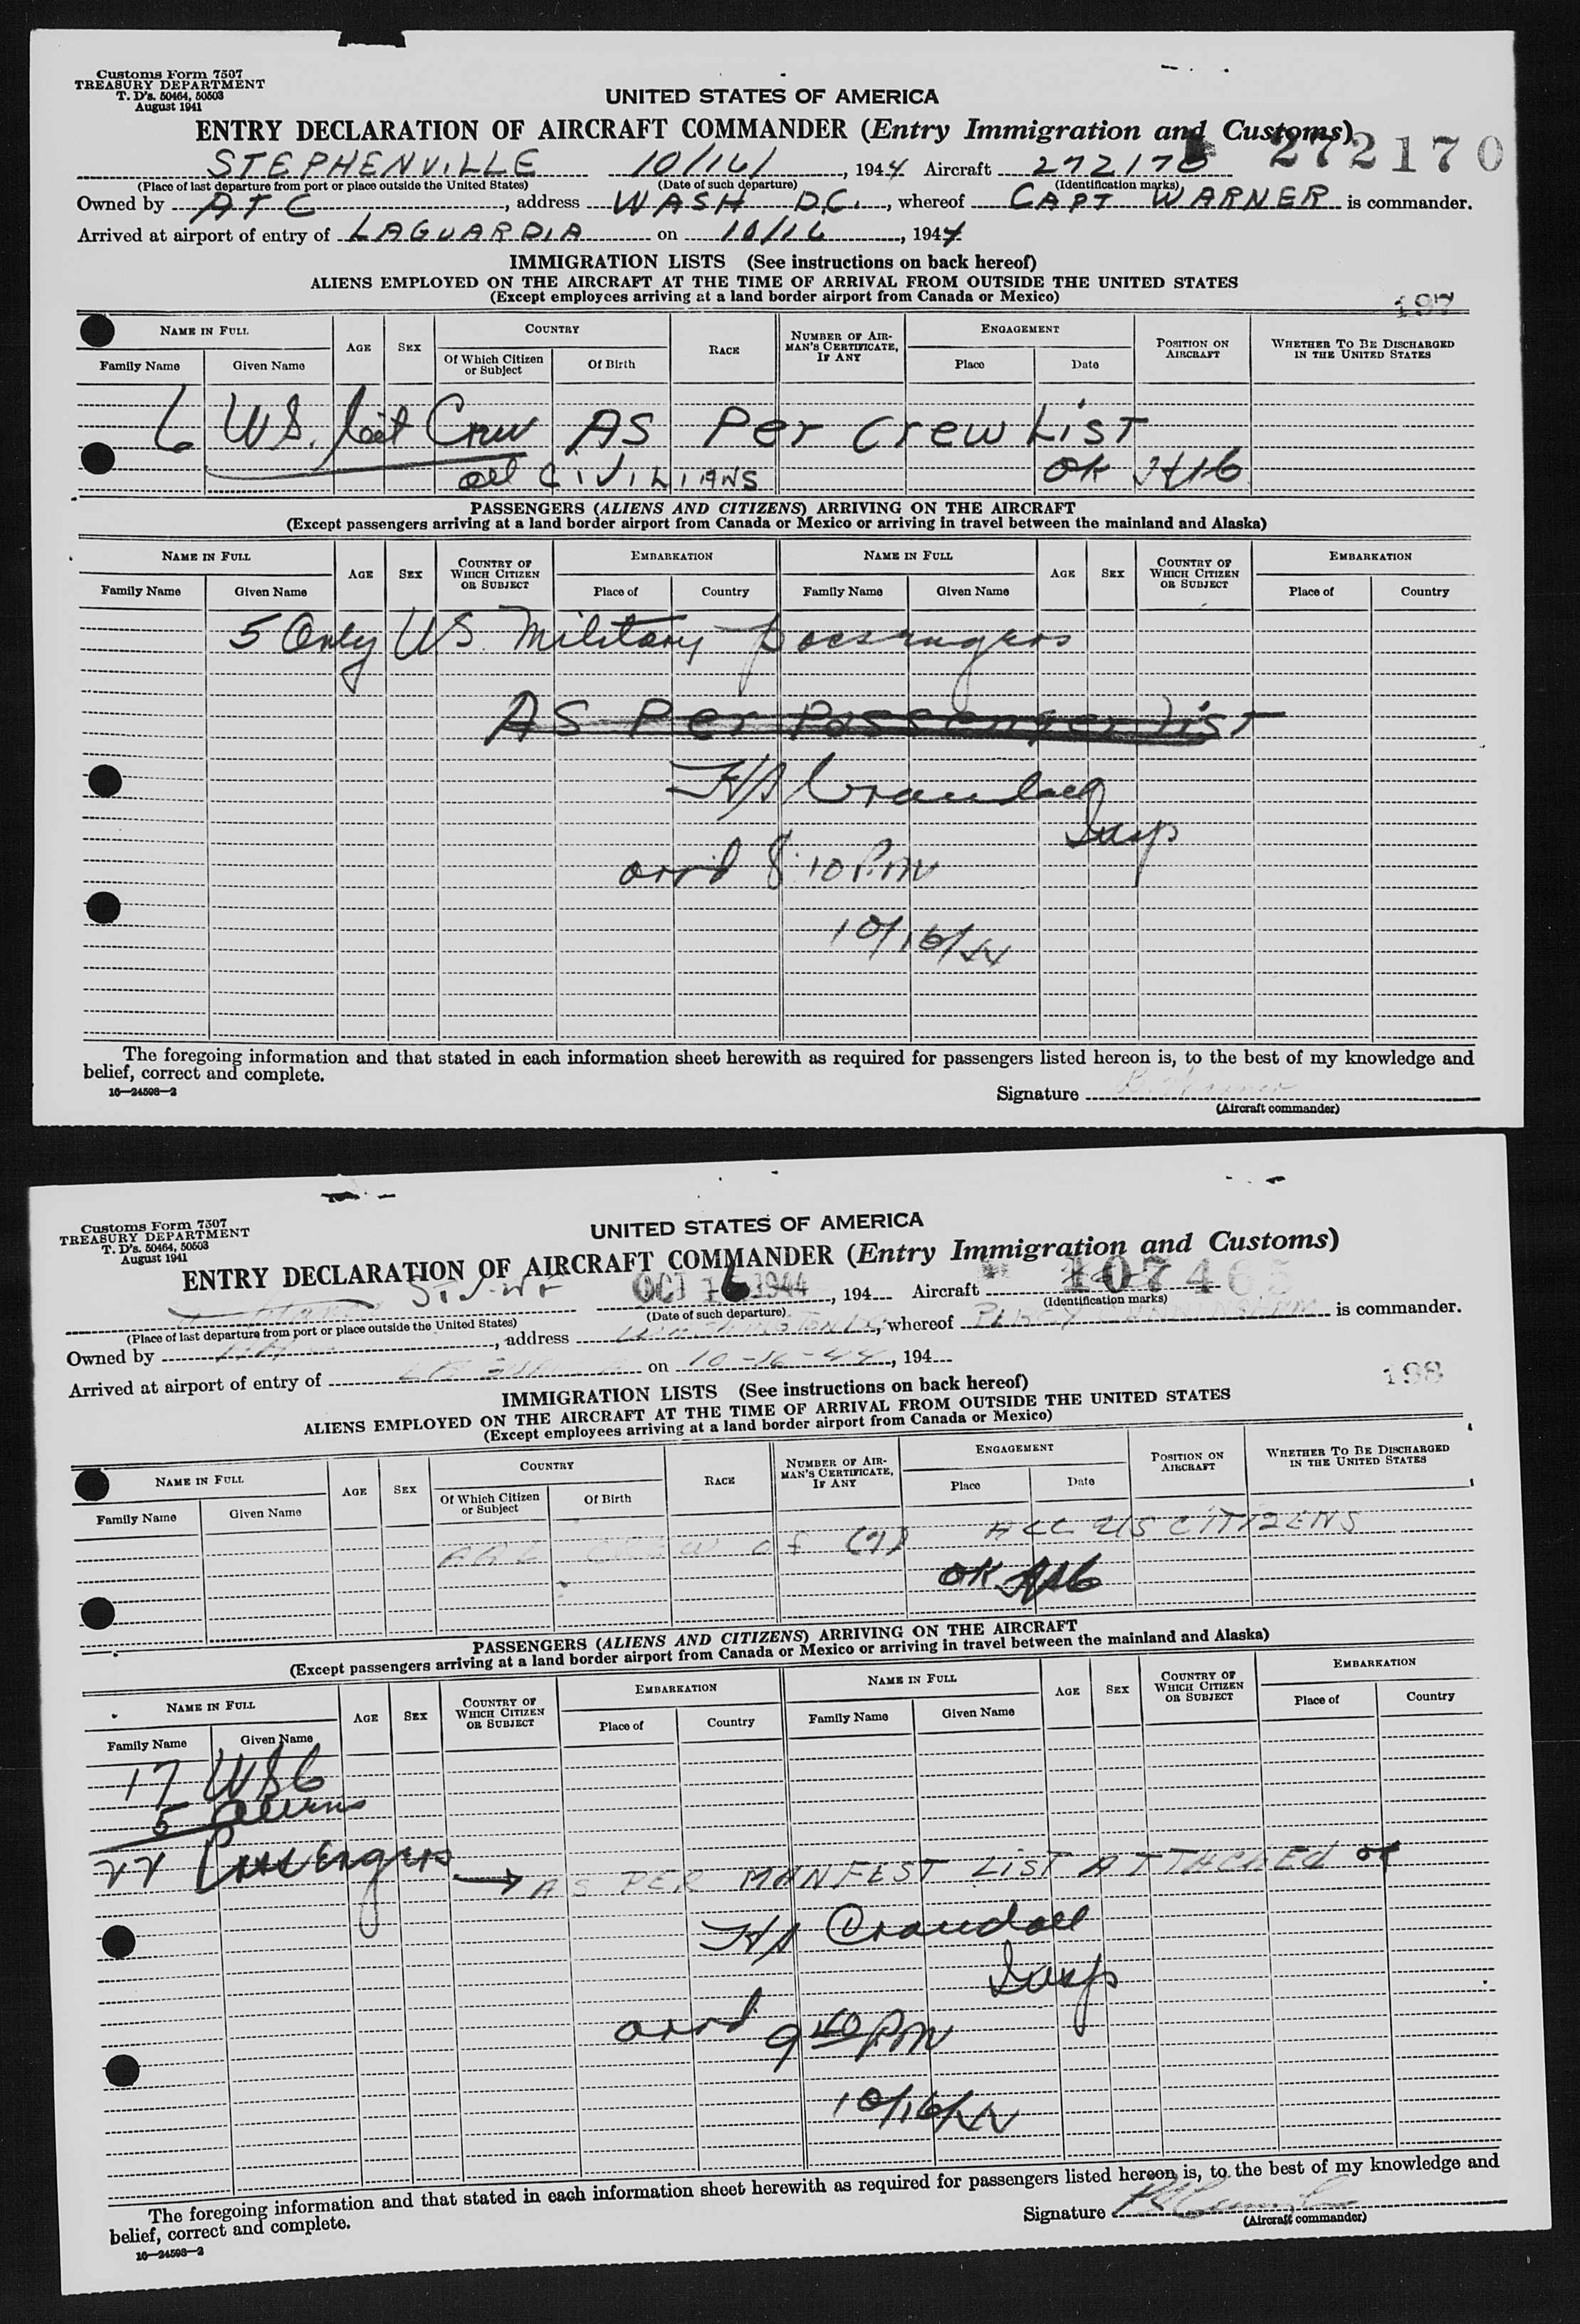 Customs Form 7507
TREASURY DEPARTMENT
T. D's. 50464, 50503
August 1941
UNITED STATES OF AMERICA
ENTRY DECLARATION OF AIRCRAFT COMMANDER (Entry Immigration and Customs)
272170
STEPHENVILLE 10/16/, 1944 Aircraft 272170
(Place of last departure from port or place outside the United States) (Date of such departure) (Identification marks)
Owned by ATC, address WASH D.C., whereof CAPT WARNER is commander.
Arrived at airport of entry of LAGUARDIA on 10/16, 1944
IMMIGRATION LISTS (See instructions on back hereof)
ALIENS EMPLOYED ON THE AIRCRAFT AT THE TIME OF ARRIVAL FROM OUTSIDE THE UNITED STATES
(Except employees arriving at a land border airport from Canada or Mexico)
197
NAME IN FULL AGE SEX COUNTRY RACE NUMBER OF AIRMAN'S CERTIFICATE, IF ANY ENGAGEMENT POSITION ON AIRCRAFT WHETHER TO BE DISCHARGED IN THE UNITED STATES
Family Name Given Name Of Which Citizen or Subject Of Birth Place Date
6 US. Crew AS Per Crew List
all CIVILIANS OK
PASSENGERS (ALIENS AND CITIZENS) ARRIVING ON THE AIRCRAFT
(Except passengers arriving at a land border airport from Canada or Mexico or arriving in travel between the mainland and Alaska)
NAME IN FULL AGE SEX COUNTRY OF WHICH CITIZEN OR SUBJECT EMBARKATION NAME IN FULL AGE SEX COUNTRY OF WHICH CITIZEN OR SUBJECT EMBARKATION
Family Name Given Name Place of Country Family Name Given Name Place of Country
5 Only US Military passengers
AS Per Passenger List
HA Crandall
Insp
arrd 8:10 PM
10/16/44
The foregoing information and that stated in each information sheet herewith as required for passengers listed hereon is, to the best of my knowledge and
belief, correct and complete.
16—24508—2
Signature
(Aircraft commander)
Customs Form 7507
TREASURY DEPARTMENT
T. D's. 50464, 50503
August 1941
UNITED STATES OF AMERICA
ENTRY DECLARATION OF AIRCRAFT COMMANDER (Entry Immigration and Customs)
OCT 16 1944, 194 Aircraft 107465
(Place of last departure from port or place outside the United States) (Date of such departure) (Identification marks)
Owned by, address WASHINGTON, whereof PERCY is commander.
Arrived at airport of entry of on 10-16-44, 194
198
IMMIGRATION LISTS (See instructions on back hereof)
ALIENS EMPLOYED ON THE AIRCRAFT AT THE TIME OF ARRIVAL FROM OUTSIDE THE UNITED STATES
(Except employees arriving at a land border airport from Canada or Mexico)
NAME IN FULL AGE SEX COUNTRY RACE NUMBER OF AIRMAN'S CERTIFICATE, IF ANY ENGAGEMENT POSITION ON AIRCRAFT WHETHER TO BE DISCHARGED IN THE UNITED STATES
Family Name Given Name Of Which Citizen or Subject Of Birth Place Date
CREW of (7) ALL US CITIZENS
OK
PASSENGERS (ALIENS AND CITIZENS) ARRIVING ON THE AIRCRAFT
(Except passengers arriving at a land border airport from Canada or Mexico or arriving in travel between the mainland and Alaska)
NAME IN FULL AGE SEX COUNTRY OF WHICH CITIZEN OR SUBJECT EMBARKATION NAME IN FULL AGE SEX COUNTRY OF WHICH CITIZEN OR SUBJECT EMBARKATION
Family Name Given Name Place of Country Family Name Given Name Place of Country
17 USC
5 Aliens
22 Passengers → AS PER MANFEST LIST ATTACHED
HA Crandall
Insp
arrd 9 40 PM
10/16/44
The foregoing information and that stated in each information sheet herewith as required for passengers listed hereon is, to the best of my knowledge and
belief, correct and complete.
16—24508—2
Signature
(Aircraft commander)